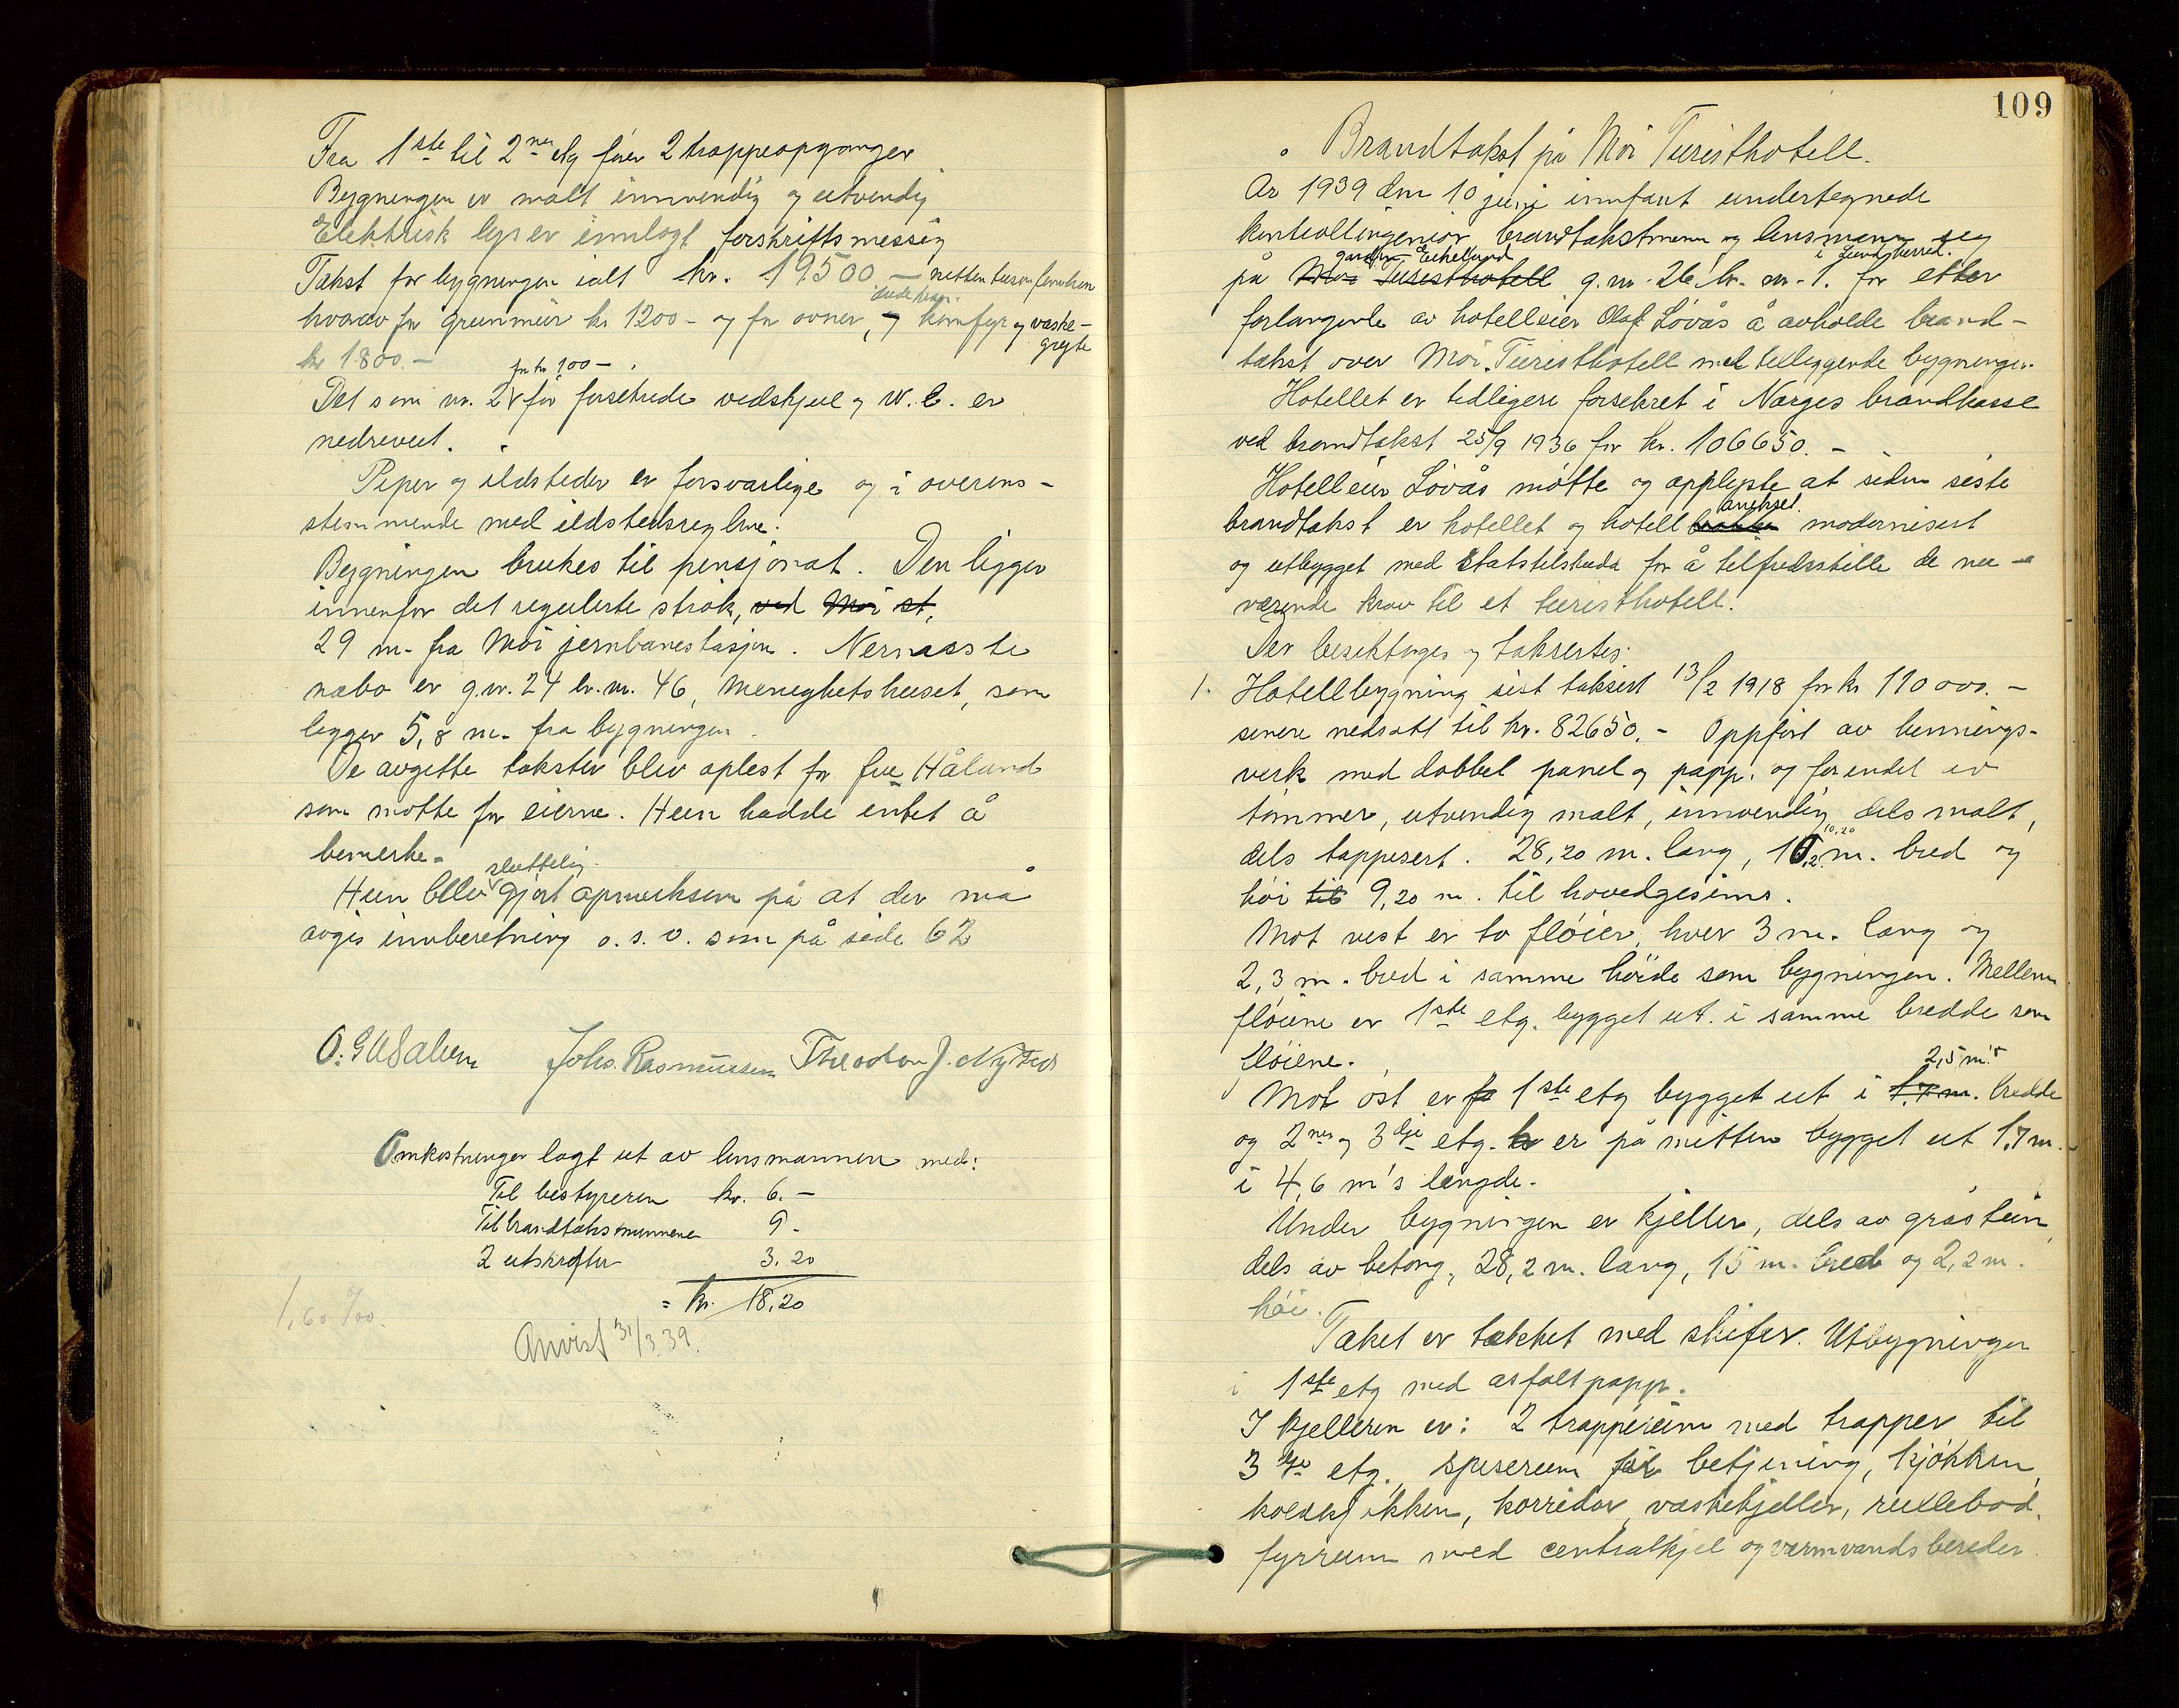 Fra 1ste til 2nen etg fører 2 trappeopganger
Bygningen er malt innvendig og utvendig
Elektrisk lys er innlagt forskriftsmessig
Takst for bygningen ialt kr. 19500 — nitten tusen femhun
hvorav for grunmur kr 1200 - og for ovner, komfyr og vaske-
gryte
kr 1800. —
for kr 100 —
Det som nr. 2 før forsekrede vedskjul og W.C. er
nedrevet.
Piper og ildsteder er forsvarlige og i overens-
stemmende med ildstedsreglene.
Bygningen brukes til pensjonat. Den ligger
innenfor det regulerte strøk, ved Moi st,
29 m. fra Moi jernbanestasjon. Nermasste
nabo er g.nr. 24 br.nr. 46, Menighetshuset, som
ligger 5,8 m. fra bygningen.
De avgitte takster blev oplest for fru Håland
som møtte for eierne. Hun hadde intet å
bemerke.
sluttelig
Hun blev gjort opmerksom på at der må
avgis innberetning o.s.v. som på side 62
Johs. Rasmussen Theodor J.
Omkostninger lagt ut av lensmannen med:
Til bestyreren kr. 6. —
Til brandtaksmennene 9 -
2 utskrifter 3.20
= kr. 18,20
1,60 ‰.
Anvist 31/3.39.
109
Brandtakst på Moi Turisthotell.
År 1939 den 10 juni innfant undertegnede
kontrollingeniør brandtakstmenn og lensmann seg
garden Eikeland i Lund herred.
på Moi Turisthotell g.nr. 26. br. nr. 1. for etter
forlangende av hotelleier Olaf Løvås å avholde brand-
takst over Moi Turisthotell med tilliggende bygninger.
Hotellet er tidligere forsekret i Norges brandkasse
ved brandtakst 25/9 1936 for kr. 106650. —
Hotelleier Løvås møtte og opplyste at siden siste
anekset.
brandtakst er hotellet og hotell modernisert
og utbygget med statstilskudd for å tilfredsstille de nu -
værende krav til et turisthotell.
Der besiktiges og taksertes:
1. Hotellbygning sist taksert 13/2 1918 for kr 110000. —
senere nedsatt til kr. 82650. — Oppført av bennings-
verk med dobbel panel og papp. og for endel av
tømmer, utvendig malt, innvendig dels malt,
10,20
dels tappesert. 28,20 m. lang, m. bred og
høi til 9,20 m. til hovedgesims.
Mot vest er to fløier, hver 3 m. lang og
2,3 m. bred i samme høide som bygningen. Mellem
fløiene er 1ste etg. bygget ut. i samme bredde som
fløiene.
2,5 m's
Mot øst er 1ste etg bygget ut i 1,7 m. bredde
og 2nen og 3dje etg. er på mitten bygget ut 1,7 m.
i 4,6 m's lengde.
Under bygningen er kjeller, dels av gråstein,
dels av betong, 28,2 m. lang, 15 m. bred og 2,2 m.
høi.
Taket er tækket med skifer. Utbygningen
i 1ste etg med asfaltpapp.
I kjelleren er: 2 trapperum med trapper til
3dje etg. spiserum for betjening, kjøkken,
koldkjøkken, korridor, vaskekjeller, rullebod,
fyrrum med centralkjel og varmvandsbereder